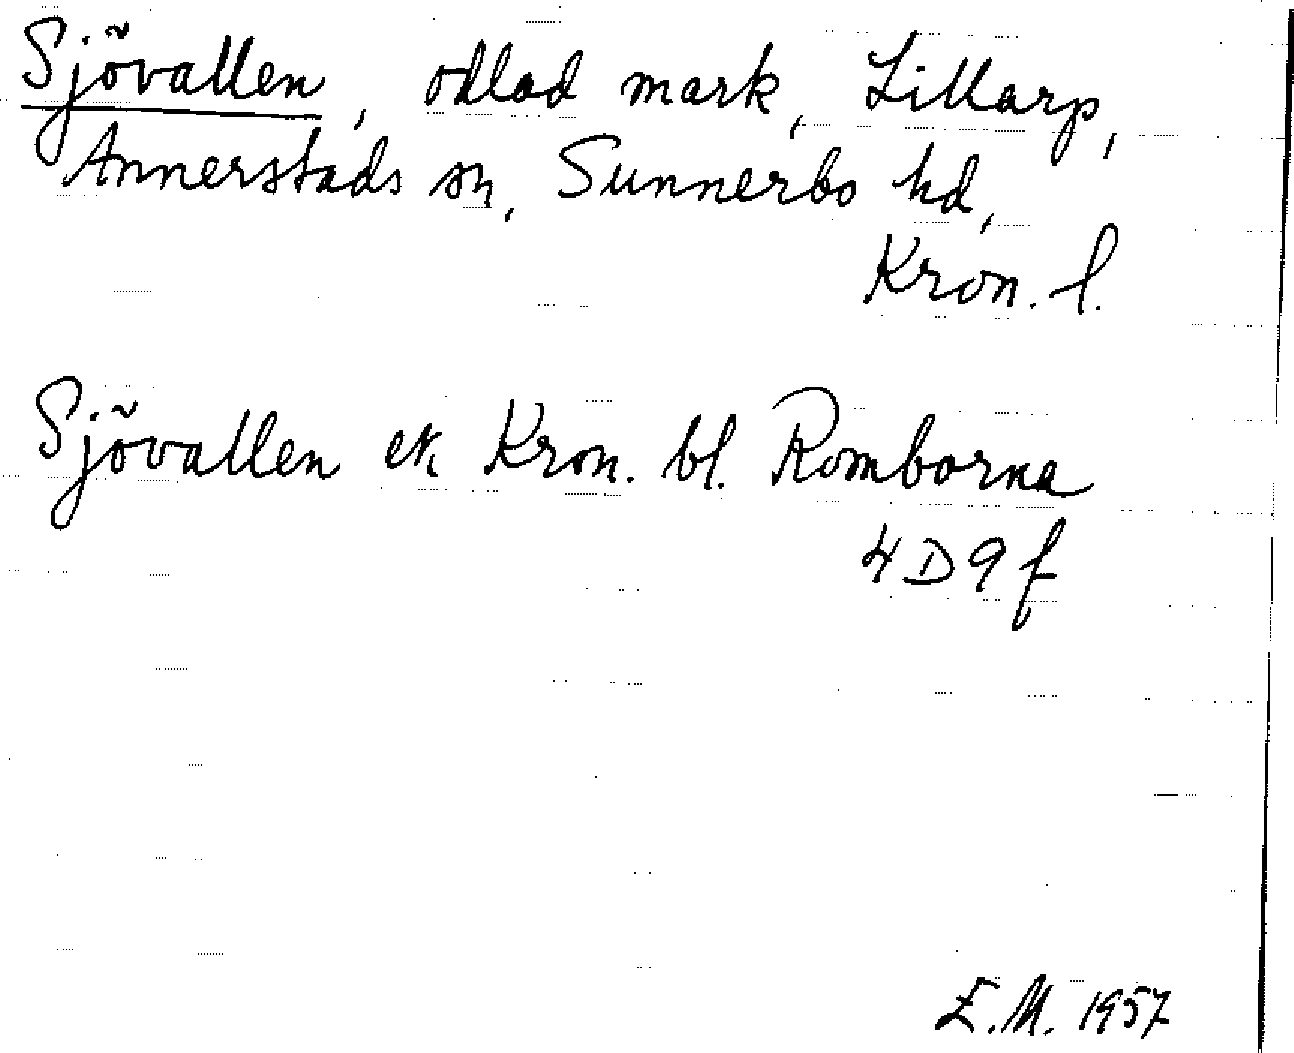 Sjövallen, odlad mark, Lillarp,
Annerstads sn, Sunnerbo hd,
Kron. l.
Sjövallen ek Kron. bl. Romborna
4D9f
E.M. 1957